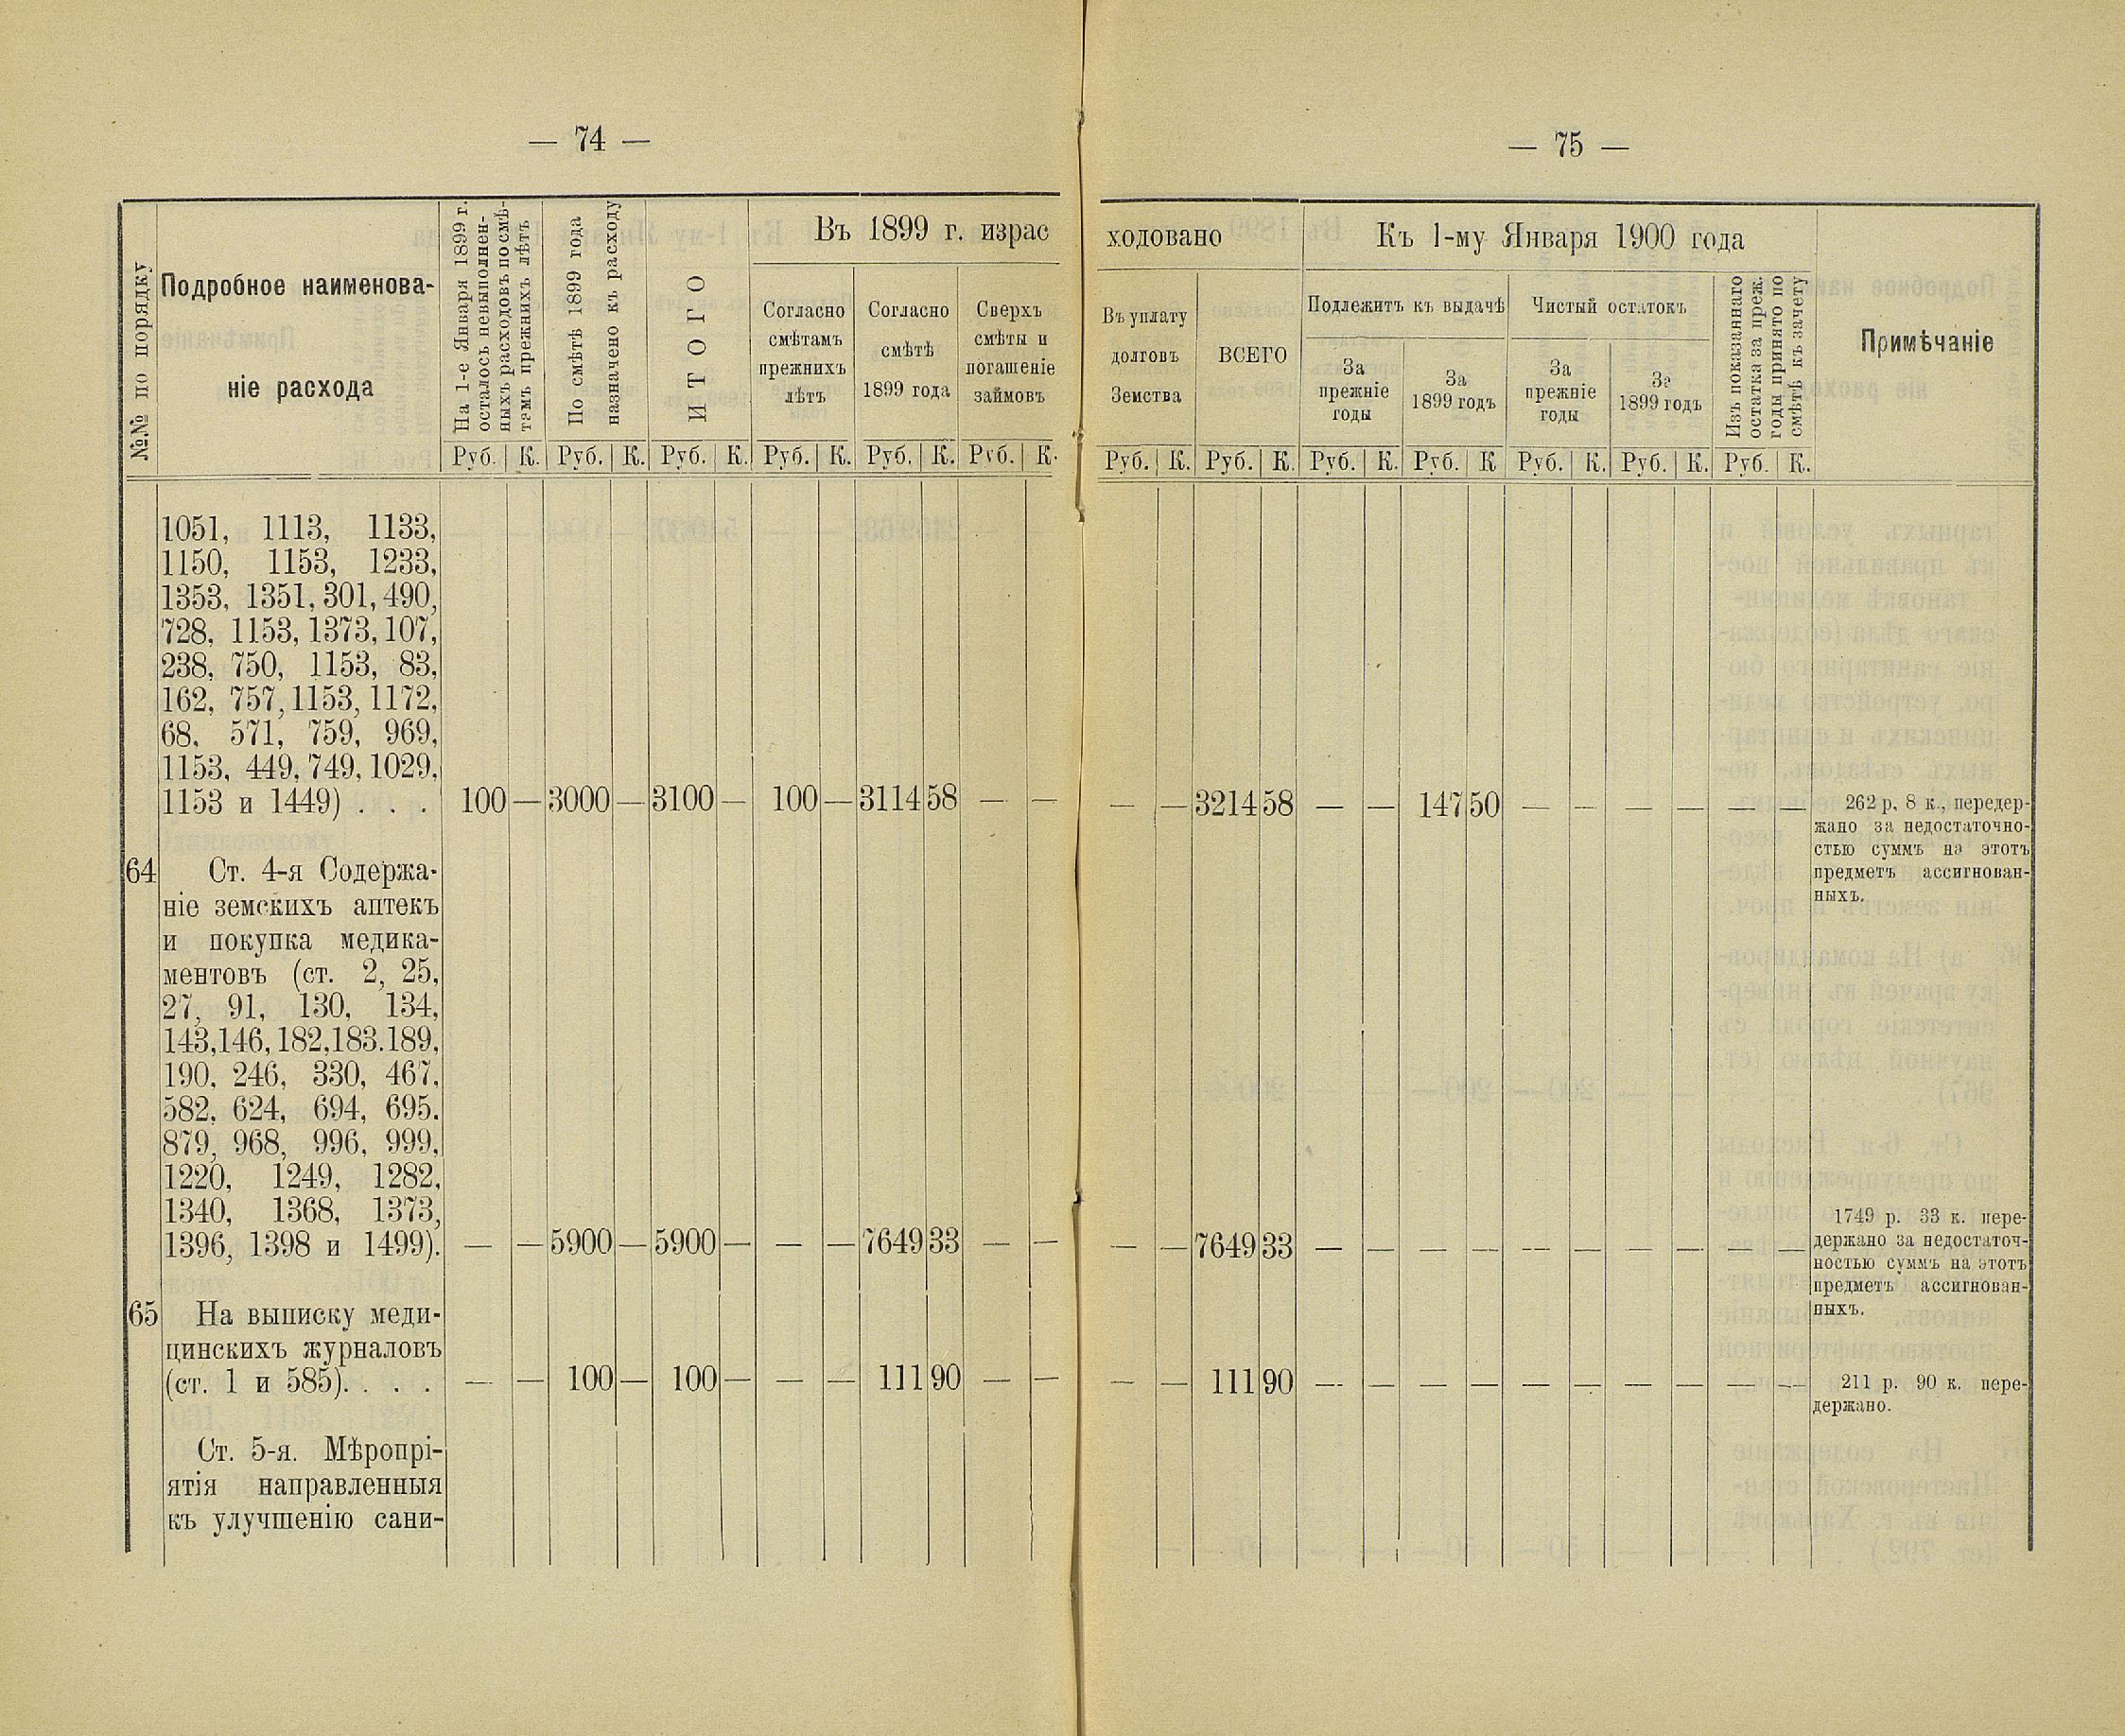 — 74 —
№№ по порядку
Подробное наименова-
ніе расхода
На 1-е Января 1899 г.
осталось невыполнен-
ныхъ расходовъ по смѣ-
тамъ прежнихъ лѣтъ
По смѣтѣ 1899 года
назначено къ расходу
ИТОГО
Въ 1899 г. израс
Согласно
смѣтамъ
прежнихъ
лѣтъ
Согласно
смѣтѣ
1899 года
Сверхъ
смѣты и
погашеніе
займовъ
Руб. К. Руб. К. Руб. К. Руб. К. Руб. К. Руб. К.
1051, 1113, 1133,
1150, 1153, 1233,
1353, 1351, 301, 490,
728, 1153, 1373, 107,
238, 750, 1153, 83,
162, 757, 1153, 1172,
68, 571, 759, 969,
1153, 449, 749, 1029,
1153 и 1449) . . . 100 — 3000 — 3100 — 100 — 3114 58 — —
64 Ст. 4-я Содержа-
ніе земскихъ аптекъ
и покупка медика-
ментовъ (ст. 2, 25,
27, 91, 130, 134,
143, 146, 182, 183. 189,
190, 246, 330, 467,
582, 624, 694, 695.
879, 968, 996, 999,
1220, 1249, 1282,
1340, 1368, 1373,
1396, 1398 и 1499). — — 5900 — 5900 — — — 7649 33 — —
65 На выписку меди-
цинскихъ журналовъ
(ст. 1 и 585). . . . — — 100 — 100 — — — 111 90 — —
Ст. 5-я. Мѣропрі-
ятія направленныя
къ улучшенію сани-
— 75 —
ходовано
Въ уплату
долговъ
Земства
ВСЕГО
Къ 1-му Января 1900 года
Подлежитъ къ выдачѣ
За
прежніе
годы
За
1899 годъ
Чистый остатокъ
За
прежніе
годы
За
1899 годъ
Изъ показаннаго
остатка за преж.
годы принято по
смѣтѣ къ зачету
Примѣчаніе
Руб. К. Руб. К. Руб. К. Руб. К Руб. К. Руб. К. Руб. К.
— — 3214 58 — — 147 50 — — — — — — 262 р. 8 к., передер-
жано за недостаточно-
стью суммъ на этотъ
предметъ ассигнован-
ныхъ.
— — 7649 33 — — — — — — — — — —
1749 р. 33 к. пере-
держано за недостаточ-
ностью суммъ на этотъ
предметъ ассигнован-
ныхъ.
— — 111 90 — — — — — — — — — — 211 р. 90 к. пере-
держано.